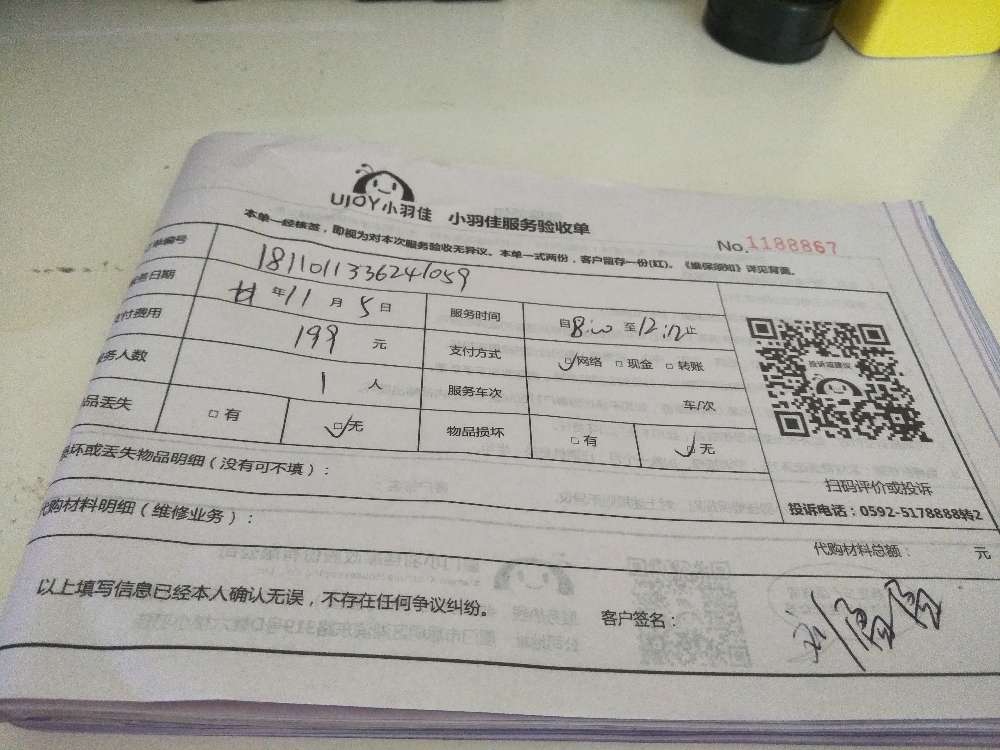 UJOY小羽佳 小羽佳服务验收单
No.1188867
本单一经核签，即视为对本次服务验收无异议。本单一式两份，客户留存一份(红)。《维保须知》详见背面。
单编号 1811011336241059
务日期 年11月5日 服务时间 自8:00至12:12止
付费用 199 元 支付方式 □网络 □现金 □转账
务人数 1 人 服务车次 车/次
品丢失 □有 □无 物品损坏 □有 □无
投诉或建议
扫码评价或投诉
投诉电话：0592-5178888转2
坏或丢失物品明细（没有可不填）：
代购材料明细（维修业务）：
代购材料总额： 元
以上填写信息已经本人确认无误，不存在任何争议纠纷。 客户签名：